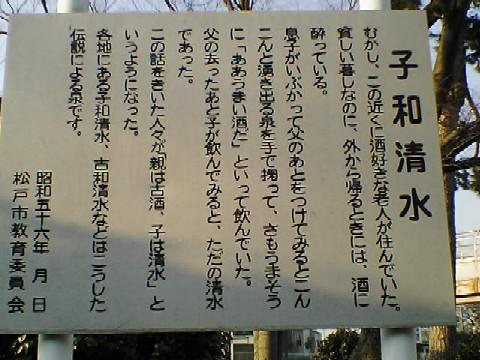 子和清水
むかし、この近くに酒好きな老人が住んでいた。
貧しい暮しなのに、外から帰るときには、酒に
酔っている。
息子がいぶかって父のあとをつけてみるとこん
こんと湧き出る泉を手で掬って、さもうまそう
に「ああうまい酒だ」といって飲んでいた。
父の去ったあと子が飲んでみると、ただの清水
であった。
この話をきいた人々が「親は古酒、子は清水」と
いうようになった。
各地にある子和清水、古和清水などはこうした
伝説による泉です。
昭和五十六年 月 日
松戸市教育委員会